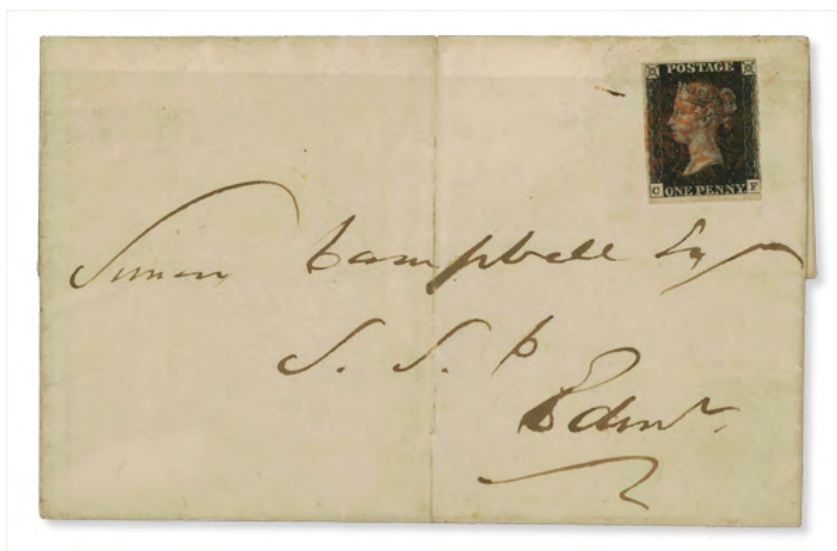 POSTAGE
C ONE PENNY F
Simon Campbell Esq
S. S. C
Edinr.